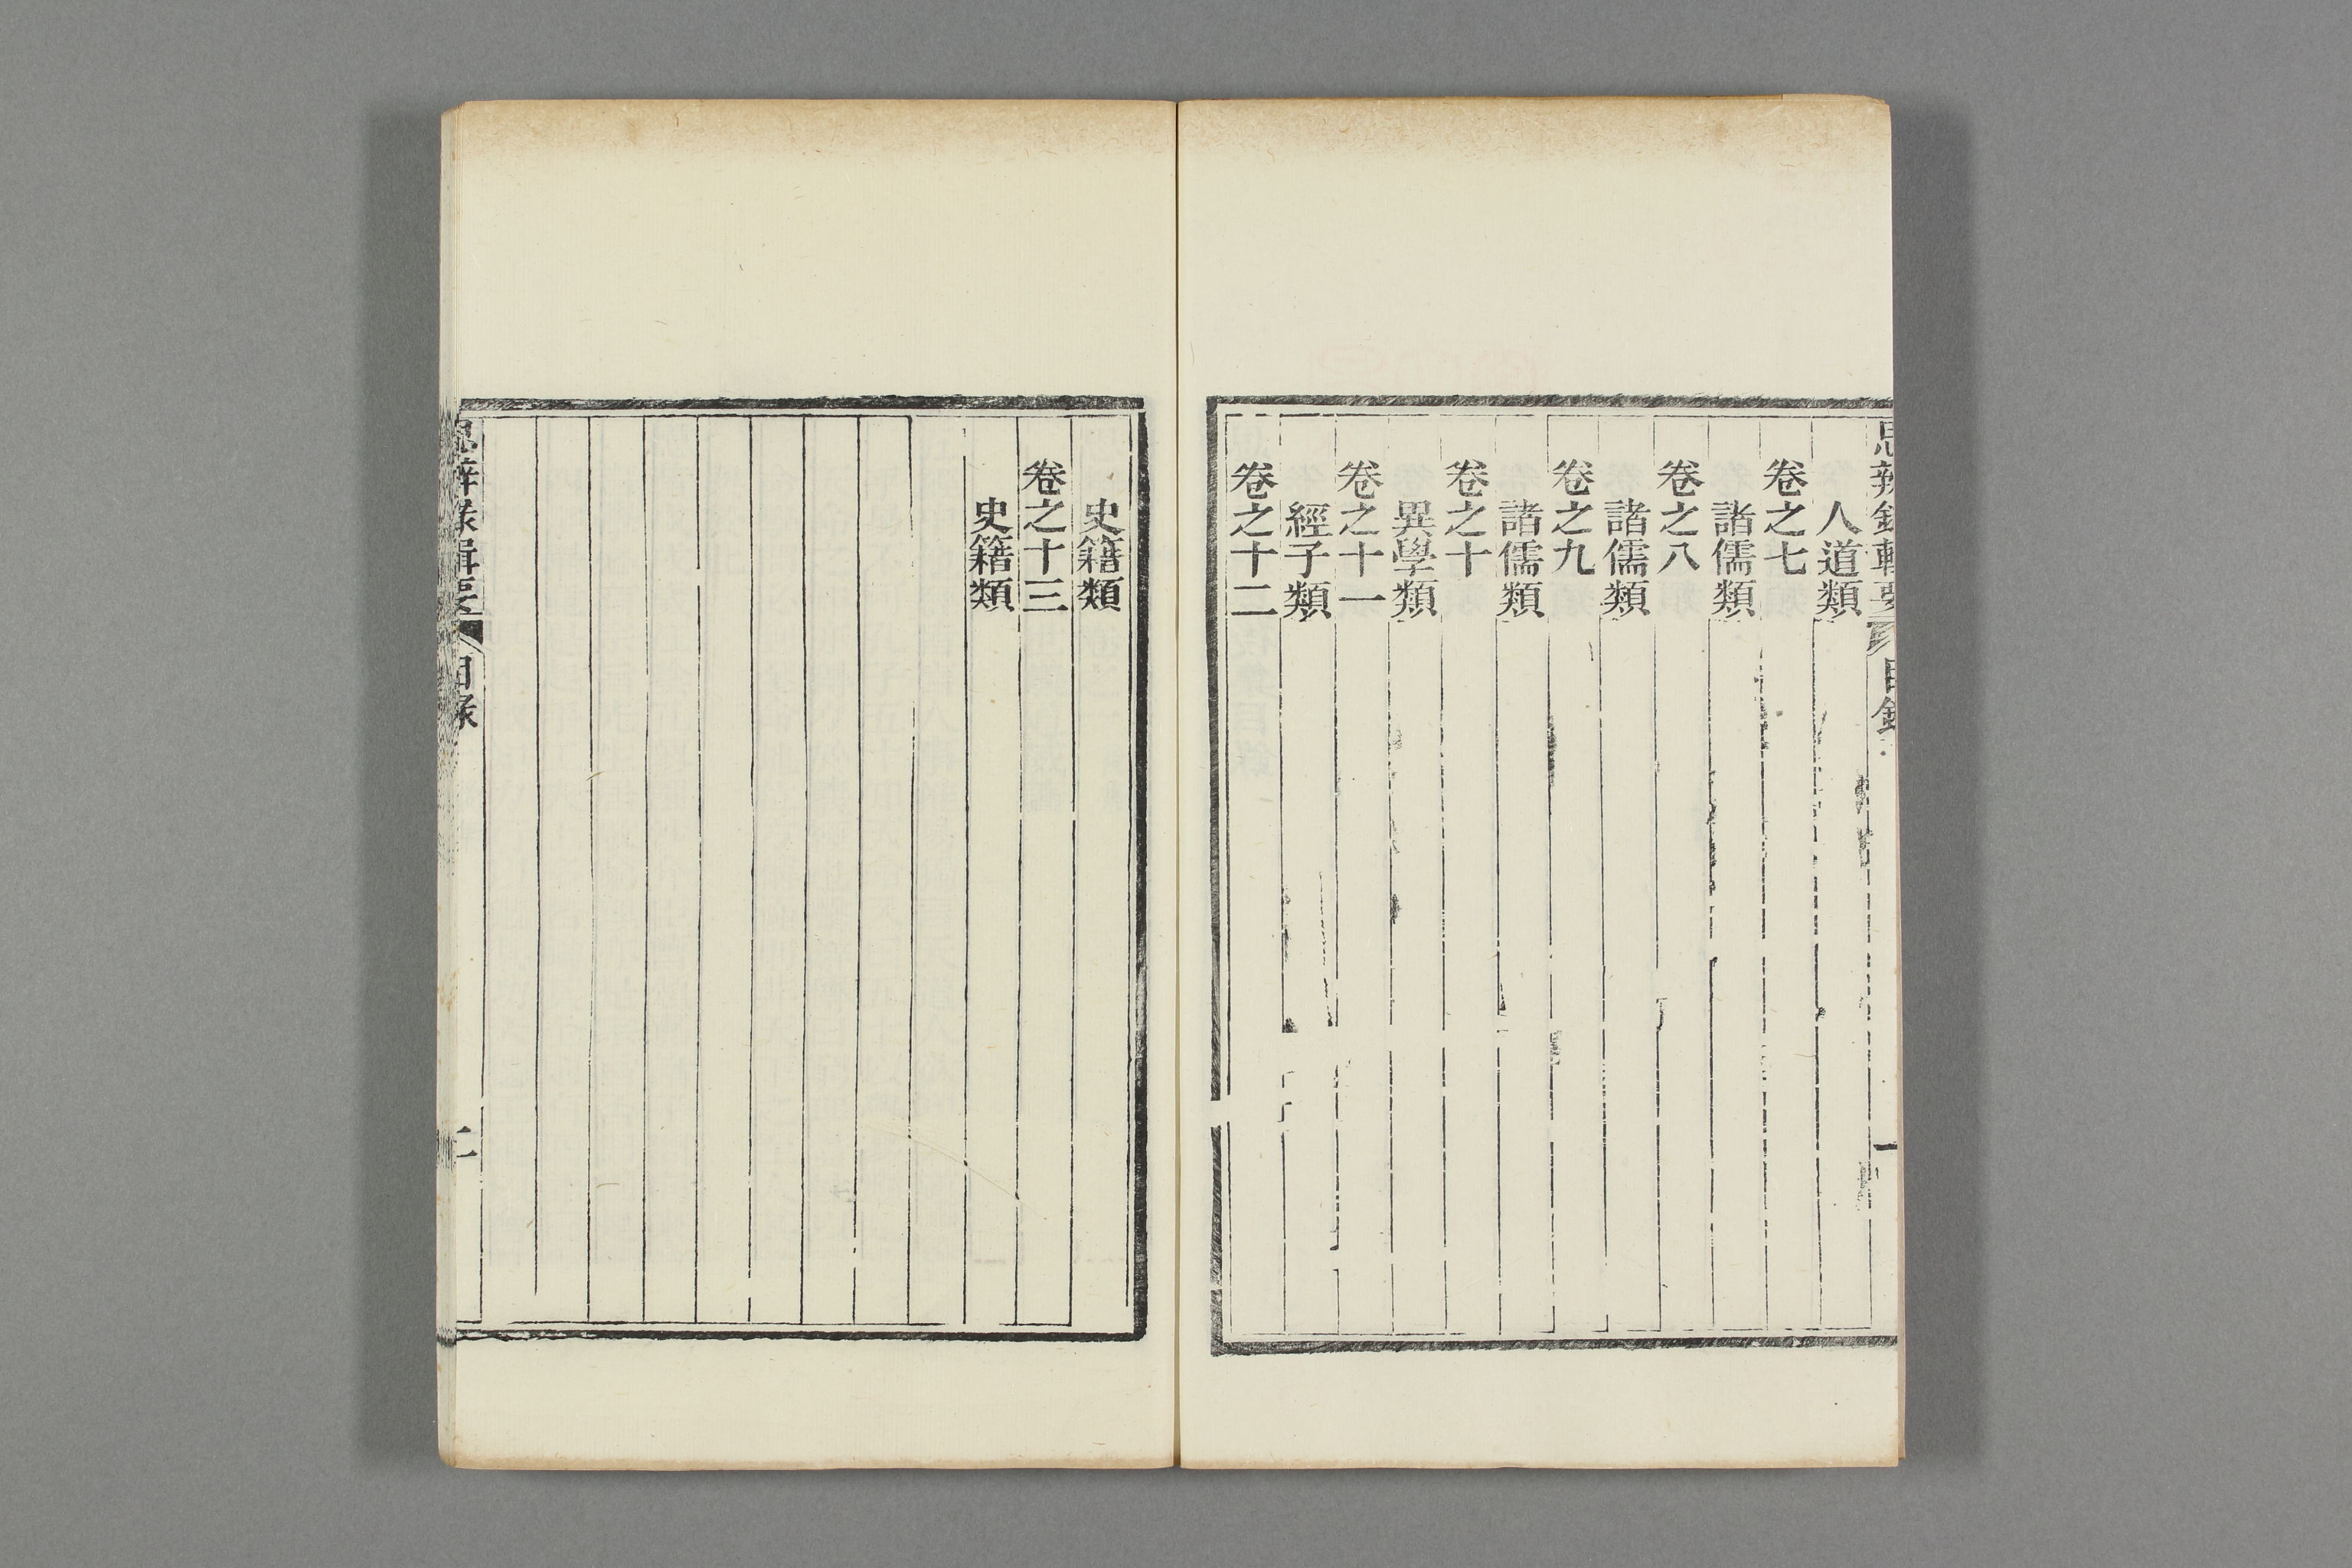 思辨錄輯要 目錄 一
人道類
卷之七
諸儒類
卷之八
諸儒類
卷之九
諸儒類
卷之十
異學類
卷之十一
經子類
卷之十二
史籍類
卷之十三
史籍類
思辨錄輯要 目錄 二